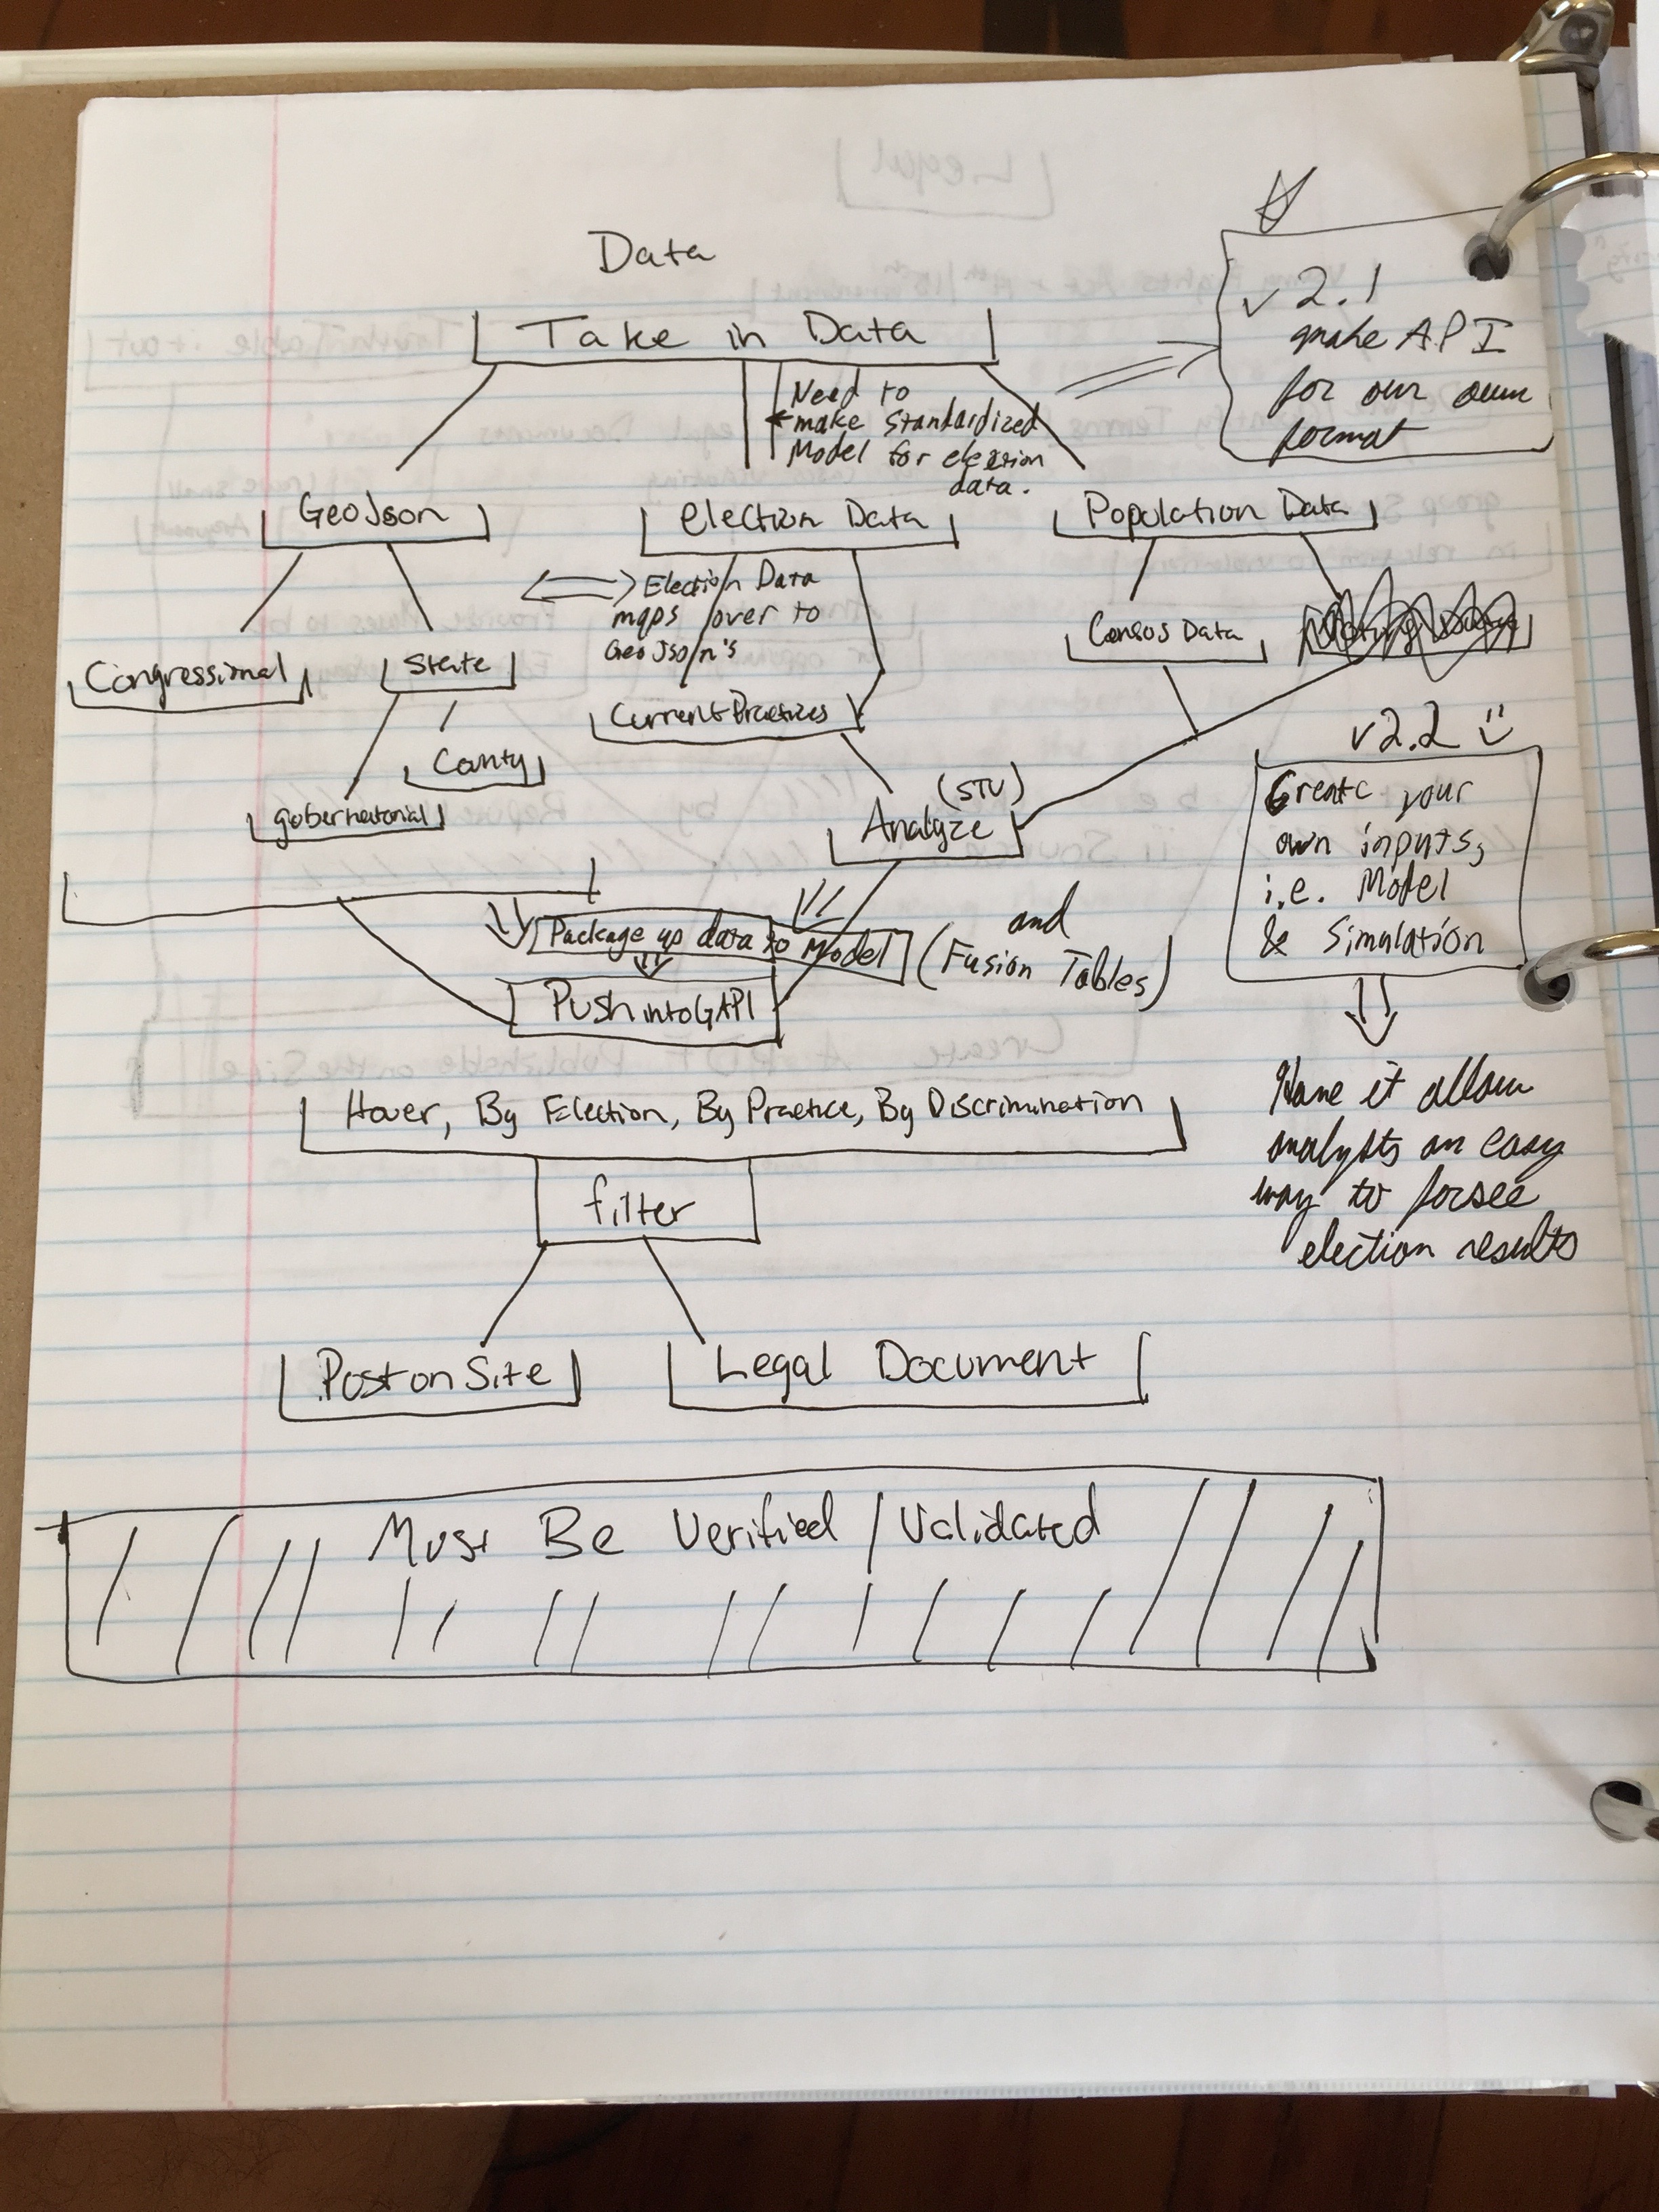 Data
Take in Data
Need to
make Standardized
Model for election
data.
v 2.1
make API
for our own
format
GeoJson
Election Data
Population Data
Election Data
maps over to
GeoJson's
Congressional
State
Current Practices
Census Data
County
gobernatorial
(STV)
Analyze
v2.2
Create your
own inputs,
i.e. Model
& Simulation
Package up data to Model
(and
Fusion Tables)
Push into GAPI
Have it allow
analysts an easy
way to forsee
election results
Hover, By Election, By Practice, By Discrimination
filter
Post on Site
Legal Document
Must Be Verified / Validated